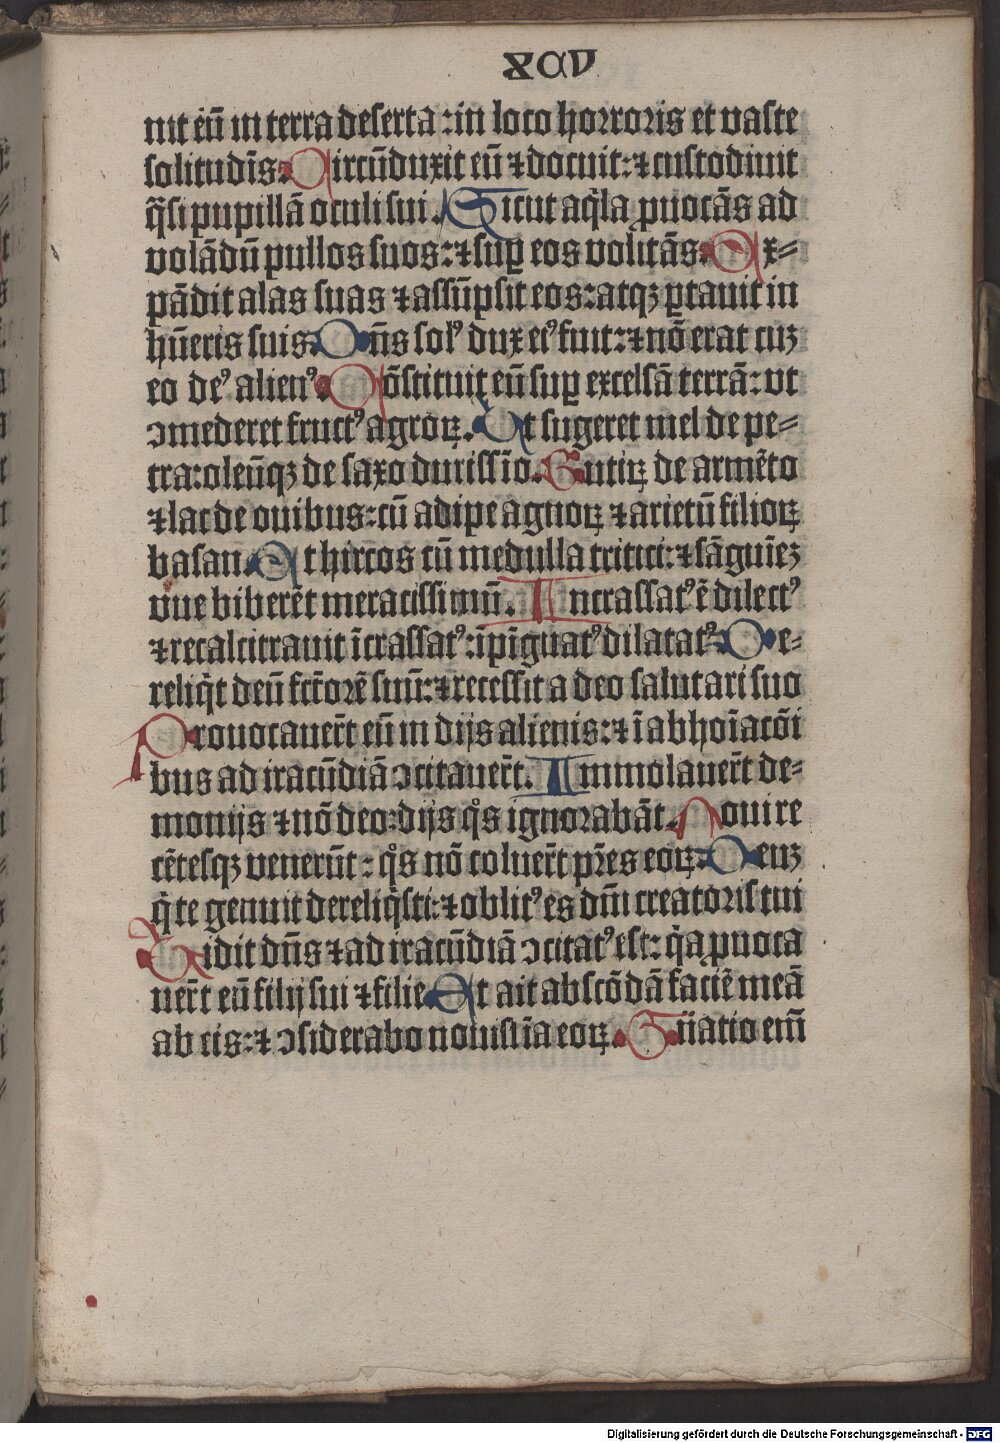 XCV
nit eū in terra deserta : in loco horroris et vaste
solitudīs. Circūduxit eū ⁊ docuit: ⁊ custodiuit
q̄si pupillā oculi sui. Sicut aq̇la ꝓuocās ad
volādū pullos suos: ⁊ suꝑ eos volitās. Ex⸗
pādit alas suas ⁊ assūpsit eos: atqꝫ ꝑtauit in
hūeris suis. Dn̄s solꝰ dux eiꝰ fuit: ⁊ nō erat cuꝫ
eo deꝰ alienꝰ. Cōstituit eū suꝑ excelsā terrā: vt
ↄmederet fructꝰ agroꝝ. Ut sugeret mel de pe⸗
tra: oleūqꝫ de saxo durissīo. Butiꝝ de armēto
⁊ lac de ouibus: cū adipe agnoꝝ ⁊ arietū filioꝝ
basan. Et hircos cū medulla tritici: ⁊ sāguīeꝫ
vue biberēt meracissimū. Incrassatꝰ ē dilectꝰ
⁊ recalcitrauit īcrassatꝰ: īpīguatꝰ dilatatꝰ. De⸗
reliq̇t deū fct̄orē suū: ⁊ recessit a deo salutari suo
Prouocauer̄t eū in dijs alienis: ⁊ ī abhoīacōi
bus ad iracūdiā ↄcitauer̄t. Immolauer̄t de⸗
monijs ⁊ nō deo: dijs q̊s ignorabāt. Noui re
cētesqꝫ venerūt : q̊s nō coluer̄t pr̄es eoꝝ. Deuꝫ
q̇ te genuit dereliq̇sti: ⁊ oblitꝰ es dn̄i creatoris tui
Uidit dn̄s ⁊ ad iracūdiā ↄcitatꝰ est: q̇a ꝓuoca
uer̄t eū filij sui ⁊ filie. Et ait abscōdā faciē meā
ab eis: ⁊ ↄsiderabo nouissīa eoꝝ. Gn̄atio em̄
Digitalisierung gefördert durch die Deutsche Forschungsgemeinschaft - DFG